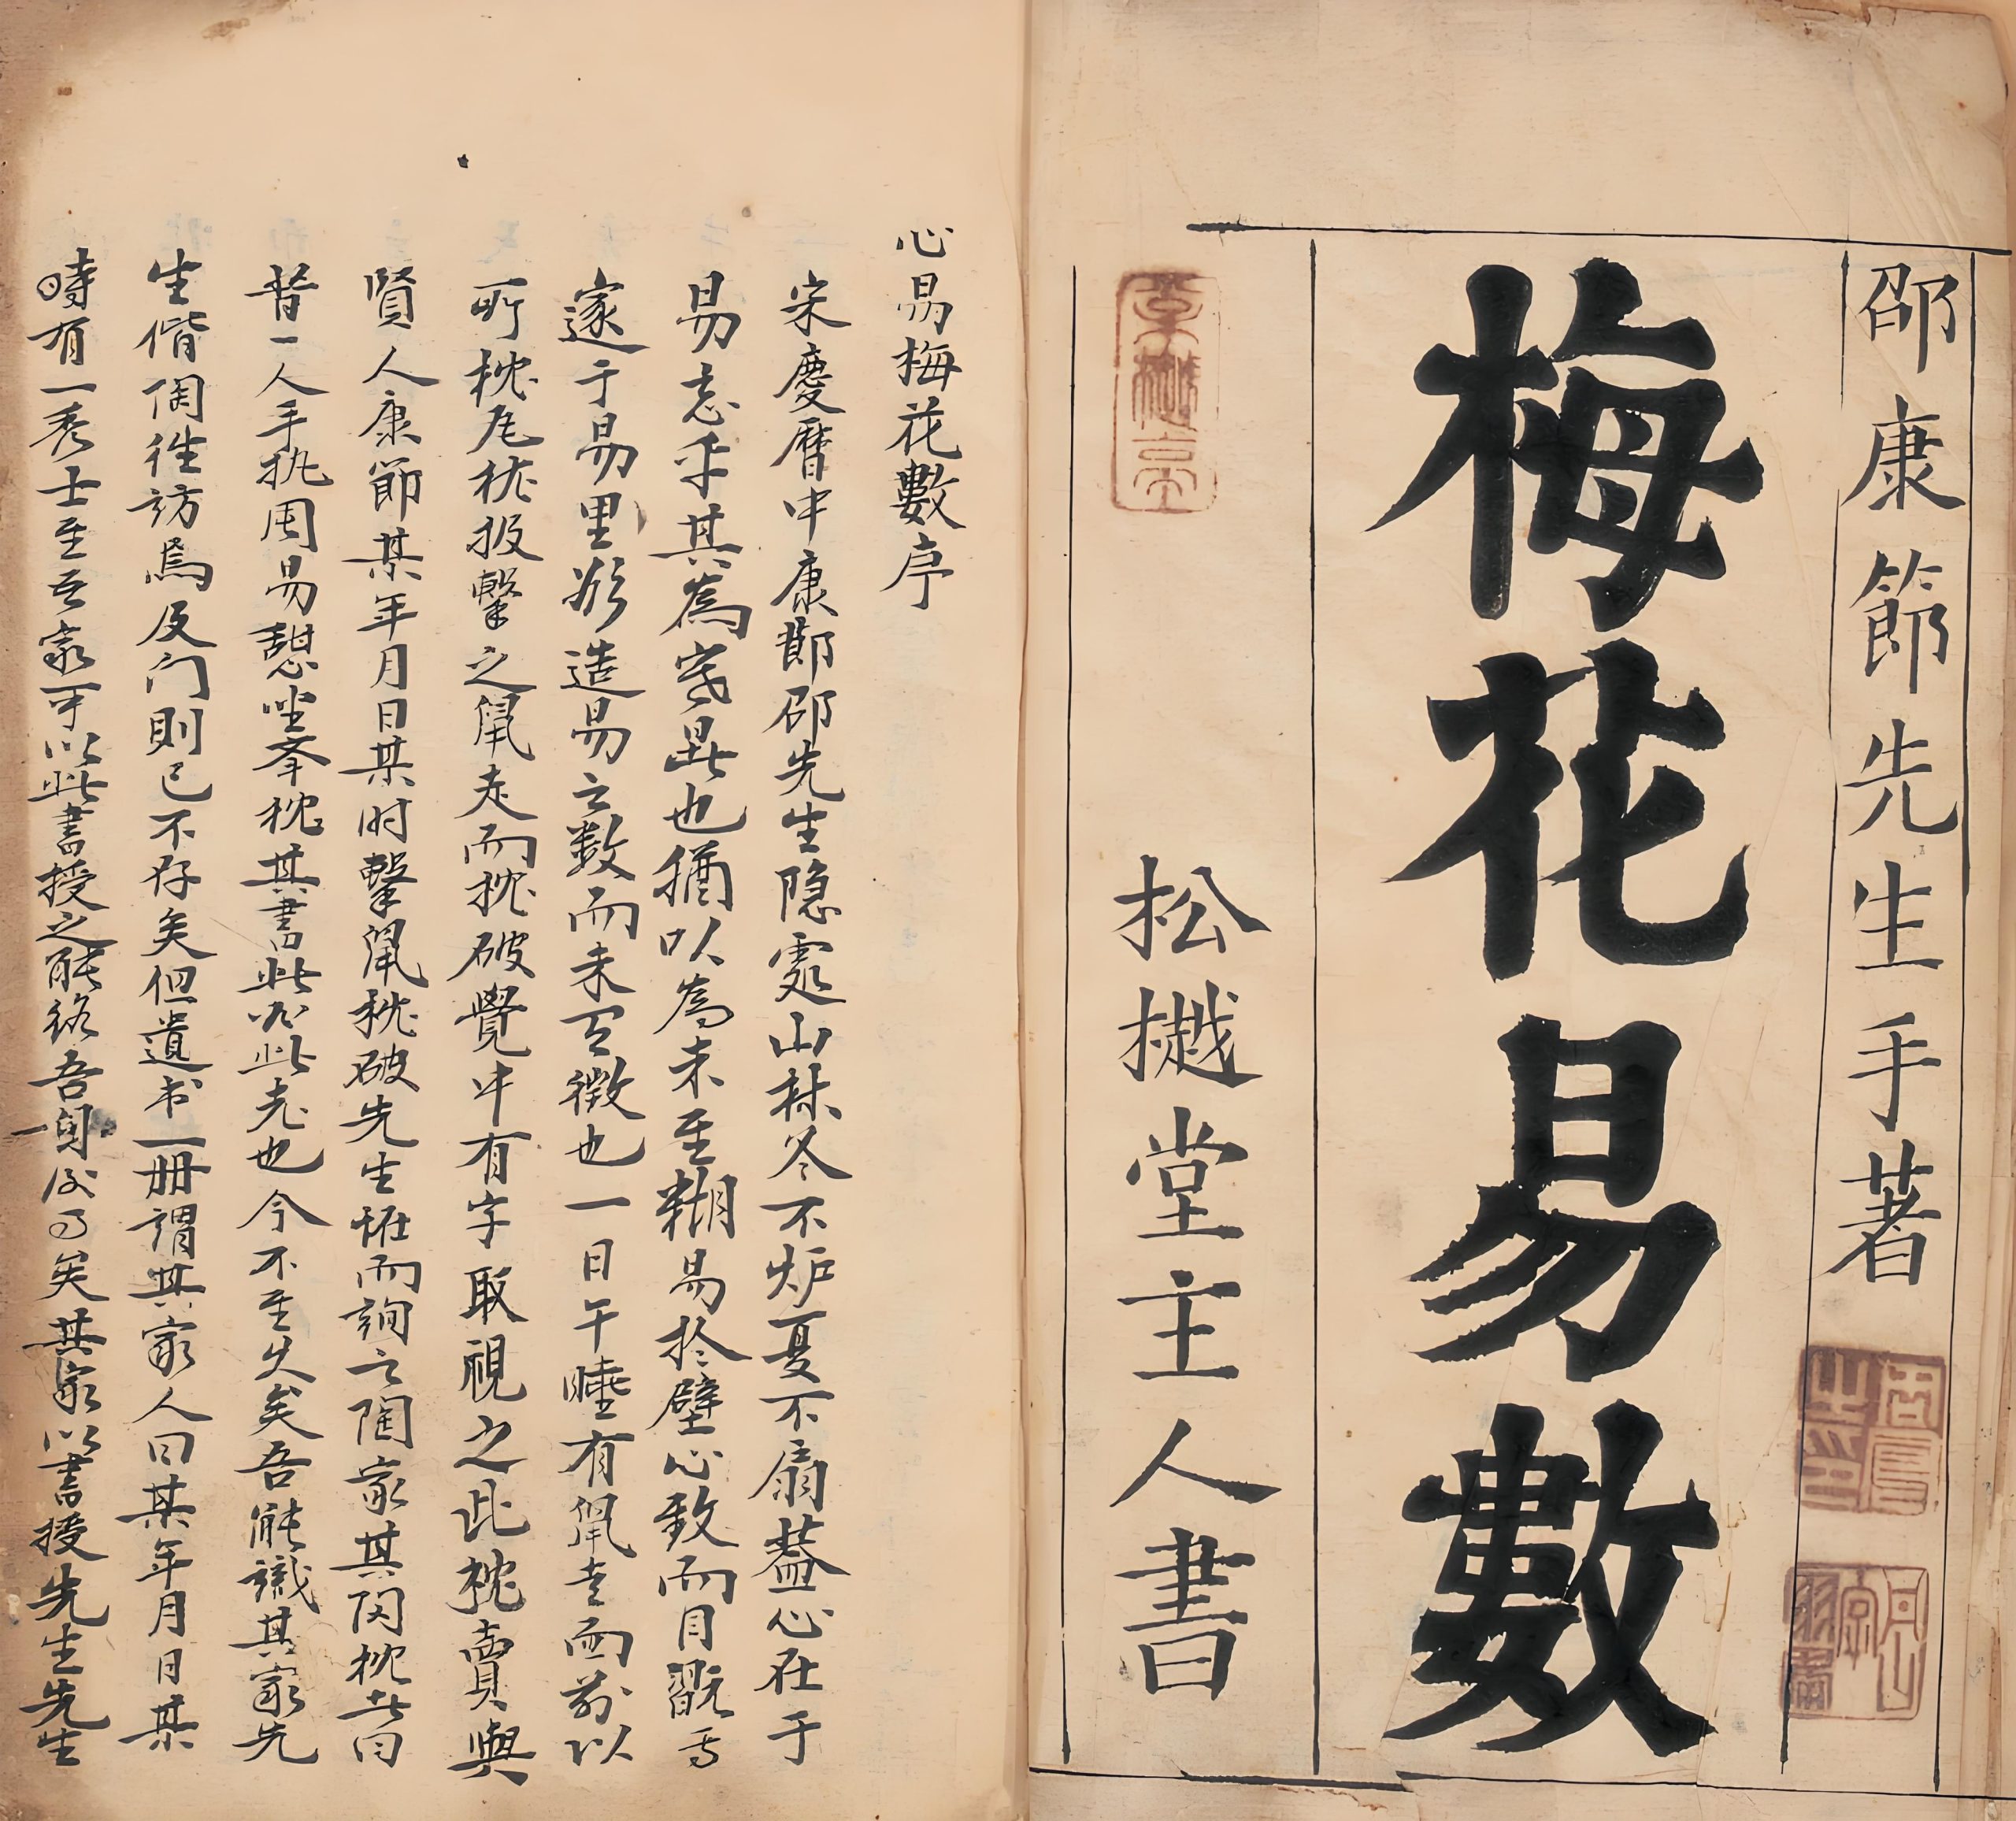 邵康節先生手著
梅花易數
松樾堂主人書
心易梅花數序
宋慶曆中康節邵先生隐處山林冬不炉夏不扇蓋心在于
易忘乎其為寒暑也猶以為未至糊易於壁心致而目翫焉
邃于易里欲造易之数而未有徵也一日午睡有鼠走而前以
所枕瓦枕投擊之鼠走而枕破覺中有字取視之此枕賣與
賢人康節某年月日某时擊鼠枕破先生恠而詢之陶家其陶枕者曰
昔一人手执周易憩坐拳枕其書此必此老也今不至久矣吾能識其家先
生偕陶徃訪焉及门則已不存矣但遺书一册謂其家人曰某年月日某
時有一秀士至吾家可以此書授之能終吾身後事矣其家以書授先生先生